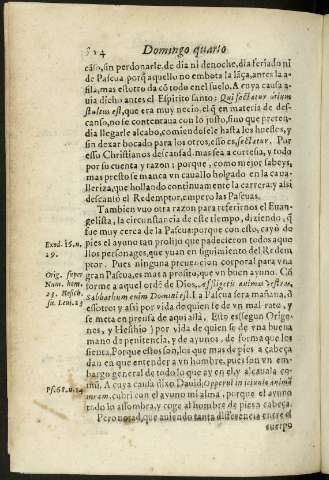 Domingo quarto
cãso, sin perdonarle, de dia ni de noche, dia feriado ni
de Pascua porq̃ aquello no embota la lãça, antes la a-
fila, mas estotro da cõ todo en el suelo. A cuya causa a-
uia dicho antes el Espiritu santo: Qui sectatur otium
stultus est, que era muy necio, el q̃ en materia de des-
canso, no se contentaua con lo justo, sino que preten-
dia llegarle al cabo, comiendosele hasta los huessos, y
sin dexar bocado para los otros, esso es, sectatur. Por
esso Christianos descansad, mas sea a cortesia, y todo
por su cuenta y razon: porque, como mejor sabeys,
mas presto se manca vn cauallo holgado en la caua-
lleriza, que hollando continuamente la carrera: y assi
descantò el Redemptor, empero las Pascuas.
Tambien vuo otra razon para referirnos el Euan-
gelista, la circunstancia de este tiempo, diziendo, q̃
fue muy cerca de la Pascua: porque con esto, cayò de
pies el ayuno tan prolijo que padecieron todos aque
llos personages, que yuan en siguimiento del Redem
ptor. Pues ninguna preuencion corporal para vna
gran Pascua, es mas a proposito, que vn buen ayuno. Cõ
forme a aquel ordẽ de Dios, Affligetis animas vestras,
Sabbatum enim Domini est. La Pascua sera mañana, ò
essotro: y assi por vida de quien se de vn mal rato, y
se meta en prensa de aqui allà. Esto es segun Orige-
nes, y Hesichio) por vida de quien se de vna buena
mano de penitencia, y de ayunos, de forma que los
sienta. Porque estos son los que mas de pies a cabeça
dan en que entender a vn hombre, pues son vn em-
bargo general de todo lo que ay en el y alcaualo en-
A cuya causa dixo Dauid: Operui in ieiunio animã
meam, cubri con el ayuno mi alma, porque el ayuno
todo lo assombra, y coge al hombre de pies a cabeça.
Pero notad, que auiendo tanta differencia entre el
cuerpo
Exod. 15. n.
19.
Orig. super
Num. hom.
23. Hesich.
in Leui. 23